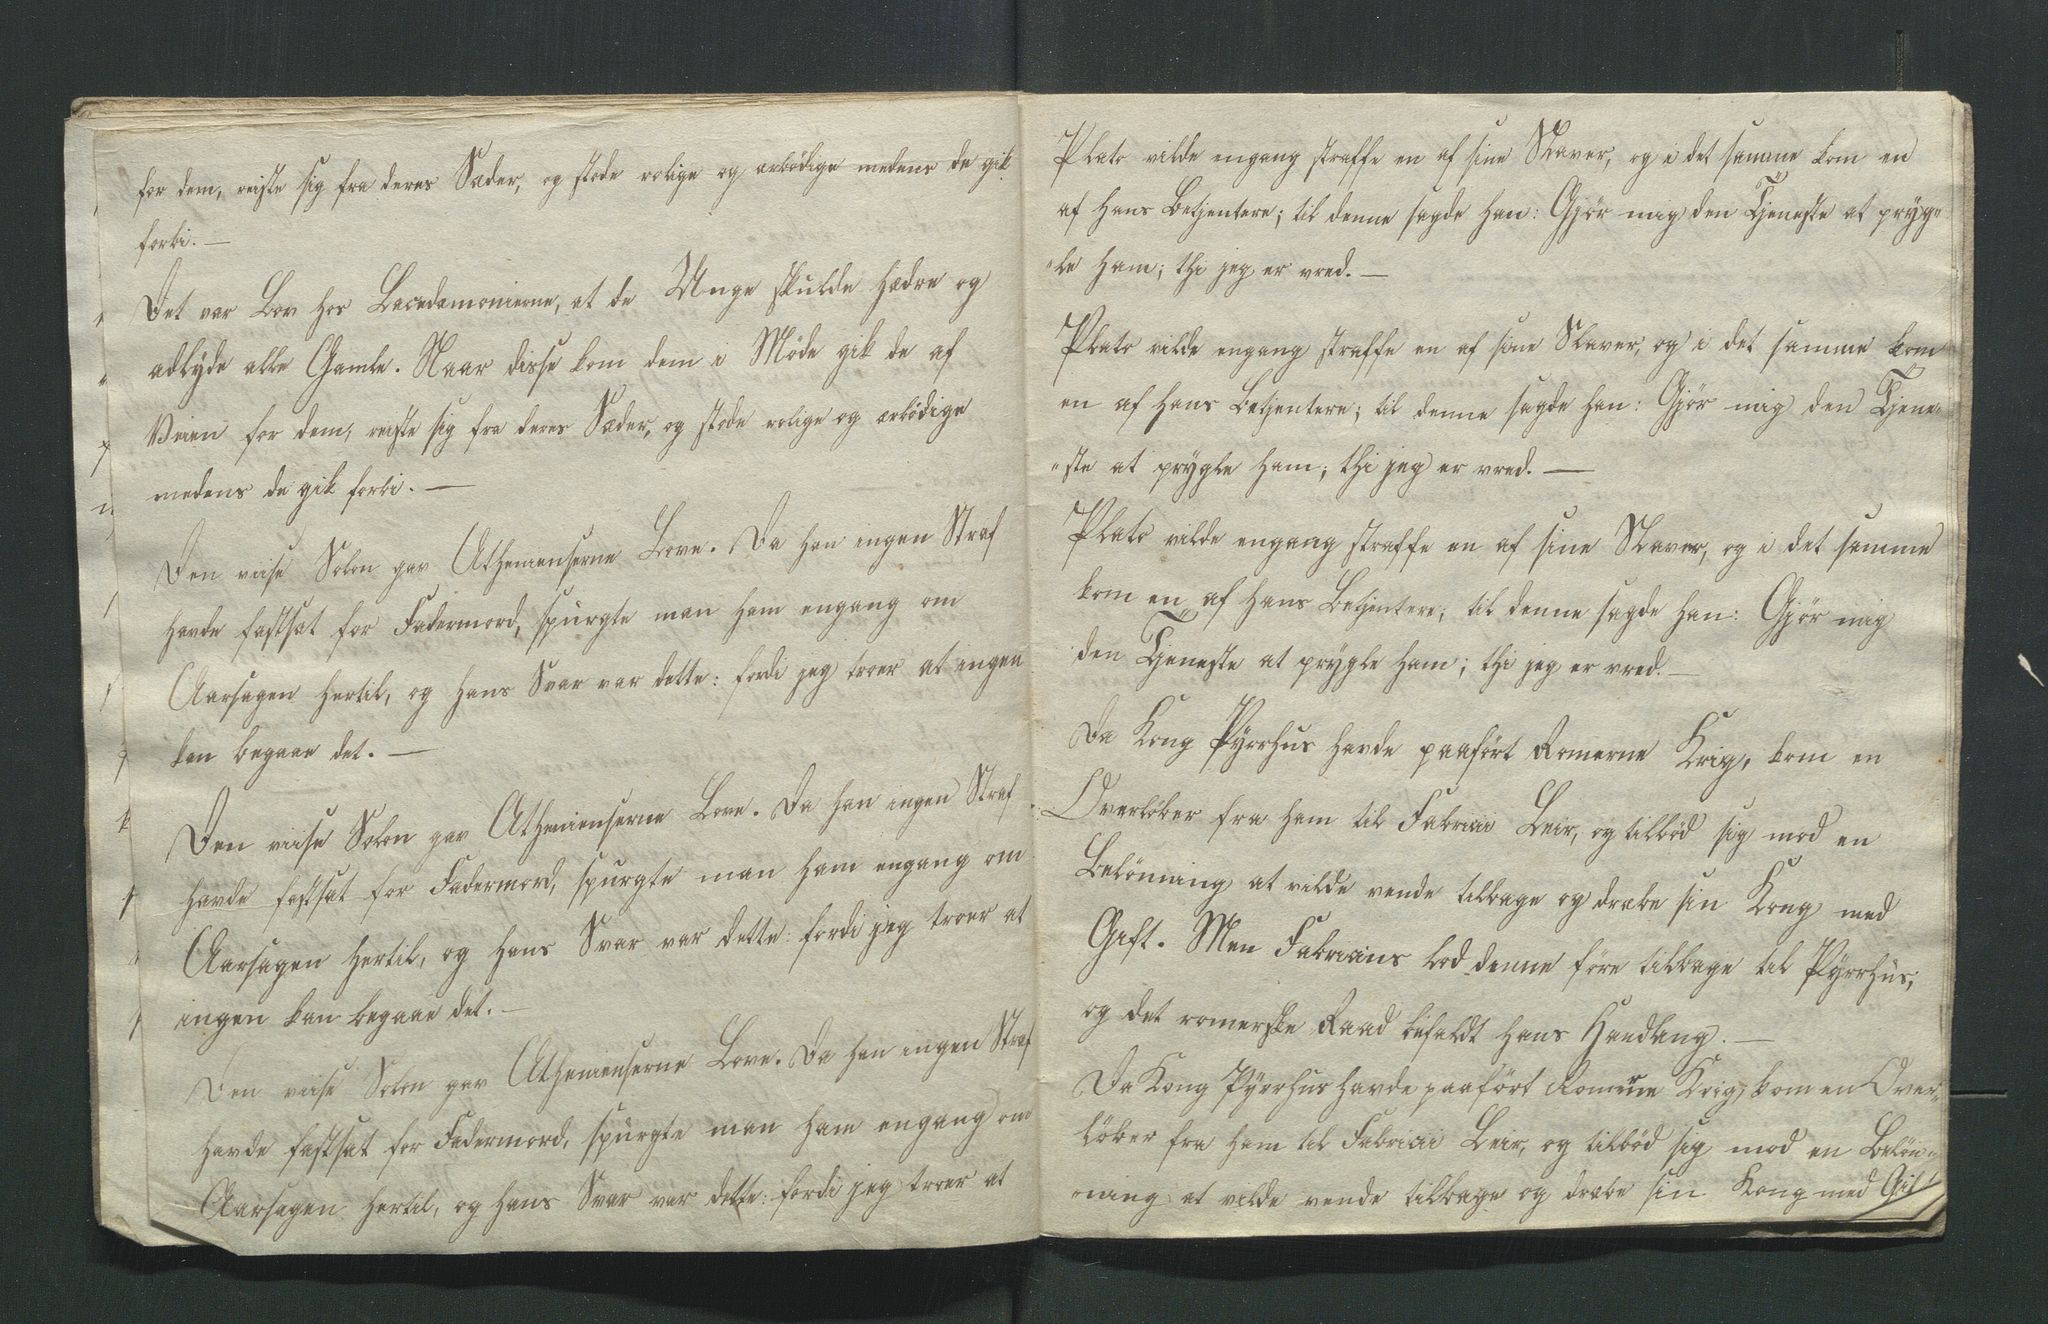 for dem, reiste sig fra deres Sæder, og stode rolige og ærbödige medens de gik
forbi. —
Det var Lov hos Lacedæmonierne, at de Unge skulde hædre og
adlyde alle Gamle. Naar disse kom dem i Möde gik de af
Veien for dem, reiste sig fra deres Sæder, og stode rolige og ærbödige
medens de gik forbi. —
Den viise Solon gav Athenienserne Love. Da han ingen Straf
havde fastsat for Fadermord, spurgte man ham engang om
Aarsagen hertil, og hans Svar var dette: fordi jeg troer at ingen
kan begaae det. —
Den viise Solon gav Athenienserne Love. Da han ingen Straf
havde fastsat for Fadermord, spurgte man ham engang om
Aarsagen hertil, og hans Svar var dette: fordi jeg troer at
ingen kan begaae det. —
Den viise Solon gav Athenienserne Love. Da han ingen Straf
havde fastsat for Fadermord, spurgte man ham engang om
Aarsagen hertil, og hans Svar var dette: fordi jeg troer at
Plato vilde engang straffe en af sine Slaver, og i det samme kom en
af hans Betjentere; til denne sagde han: Gjör mig den Tjeneste at pryg-
-le ham; thi jeg er vred. —
Plato vilde engang straffe en af sine Slaver, og i det samme kom
en af hans Betjentere; til denne sagde han: Gjör mig den Tjene-
-ste at prygle ham; thi jeg er vred. —
Plato vilde engang straffe en af sine Slaver, og i det samme
kom en af hans Betjentere; til denne sagde han: Gjör mig
den Tjeneste at prygle ham; thi jeg er vred. —
Da Kong Pyrrhus havde paafört Romerne Krig, kom en
Overlöber fra ham til Fabricii Leir, og tilböd sig mod en
Belönning at vilde vende tilbage og dræbe sin Kong med
Gift. Men Fabricius lod denne före tilbage til Pyrrhus;
og det romerske Raad bifaldt hans Handling. —
Da Kong Pyrrhus havde paafört Romerne Krig, kom en Over-
löber fra ham til Fabricii Leir, og tilböd sig mod en Belön-
-ning at vilde vende tilbage og dræbe sin Kong med Gif